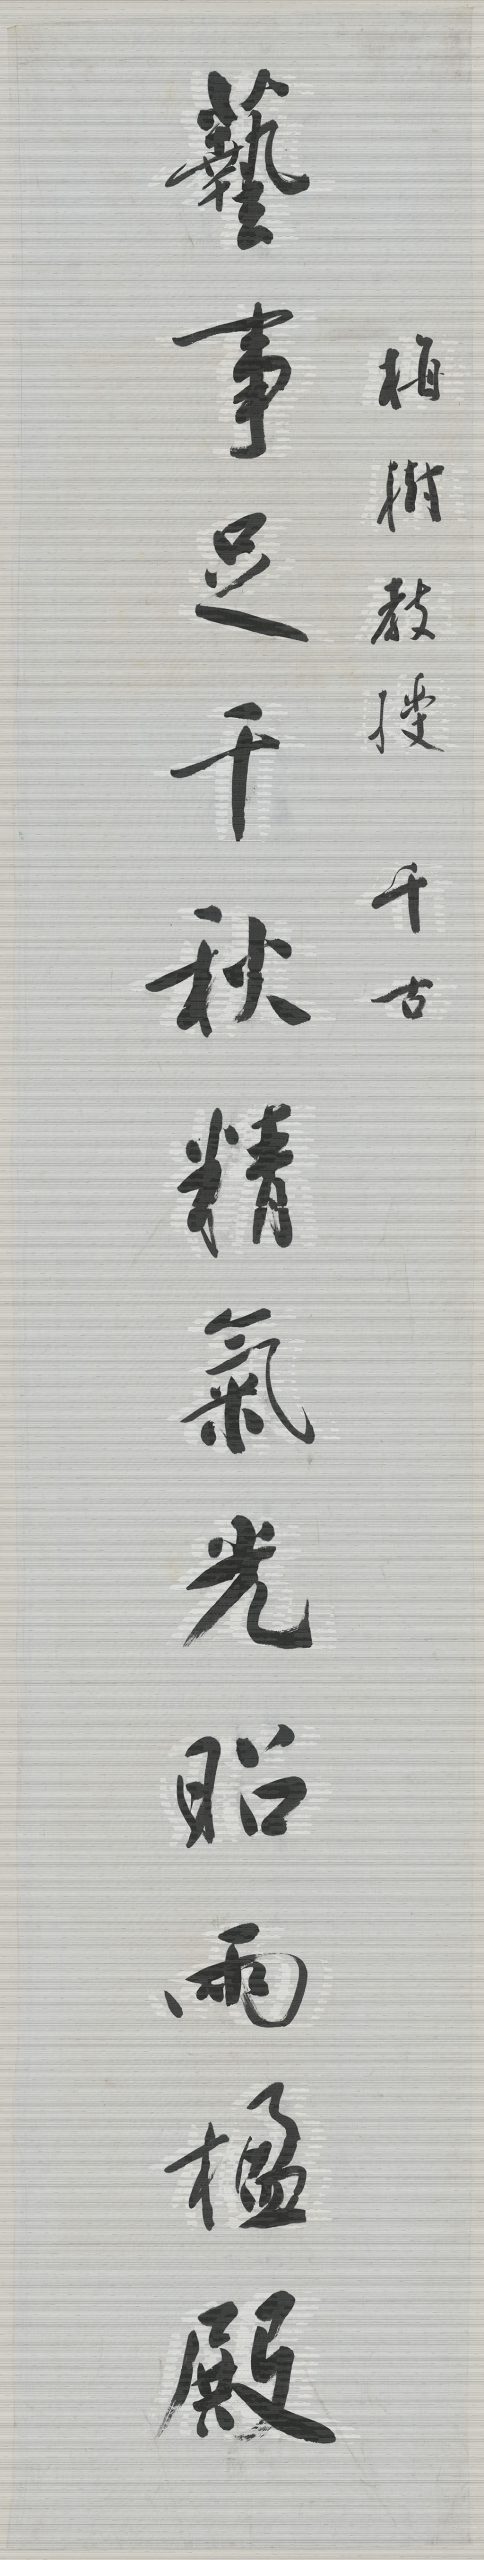 梅樹教授 千古
藝事足千秋精氣光昭兩楹殿